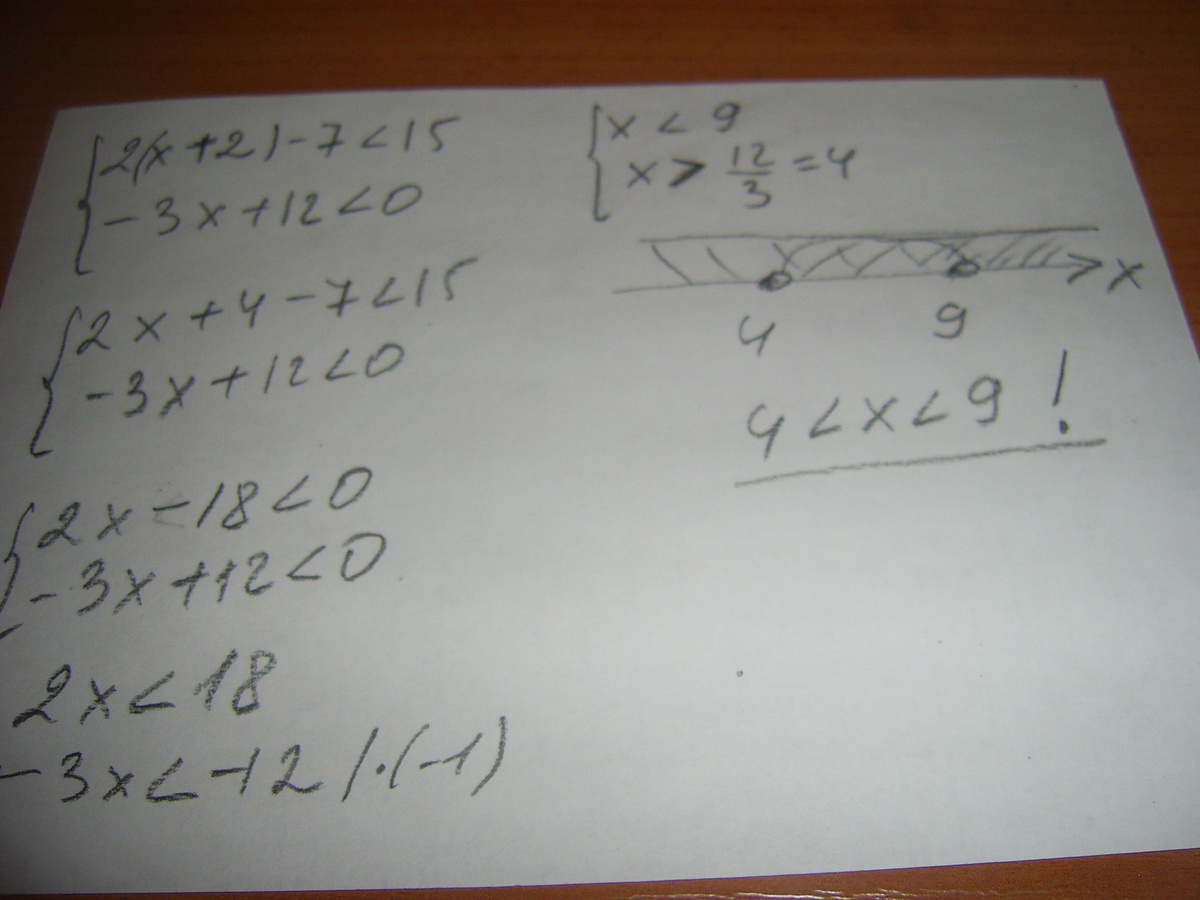 2(x+2)-7<15
-3x+12<0
2x+4-7<15
-3x+12<0
2x-18<0
-3x+12<0
2x<18
-3x<-12 /·(-1)
x<9
x>12/3=4
x
4 9
4<x<9!